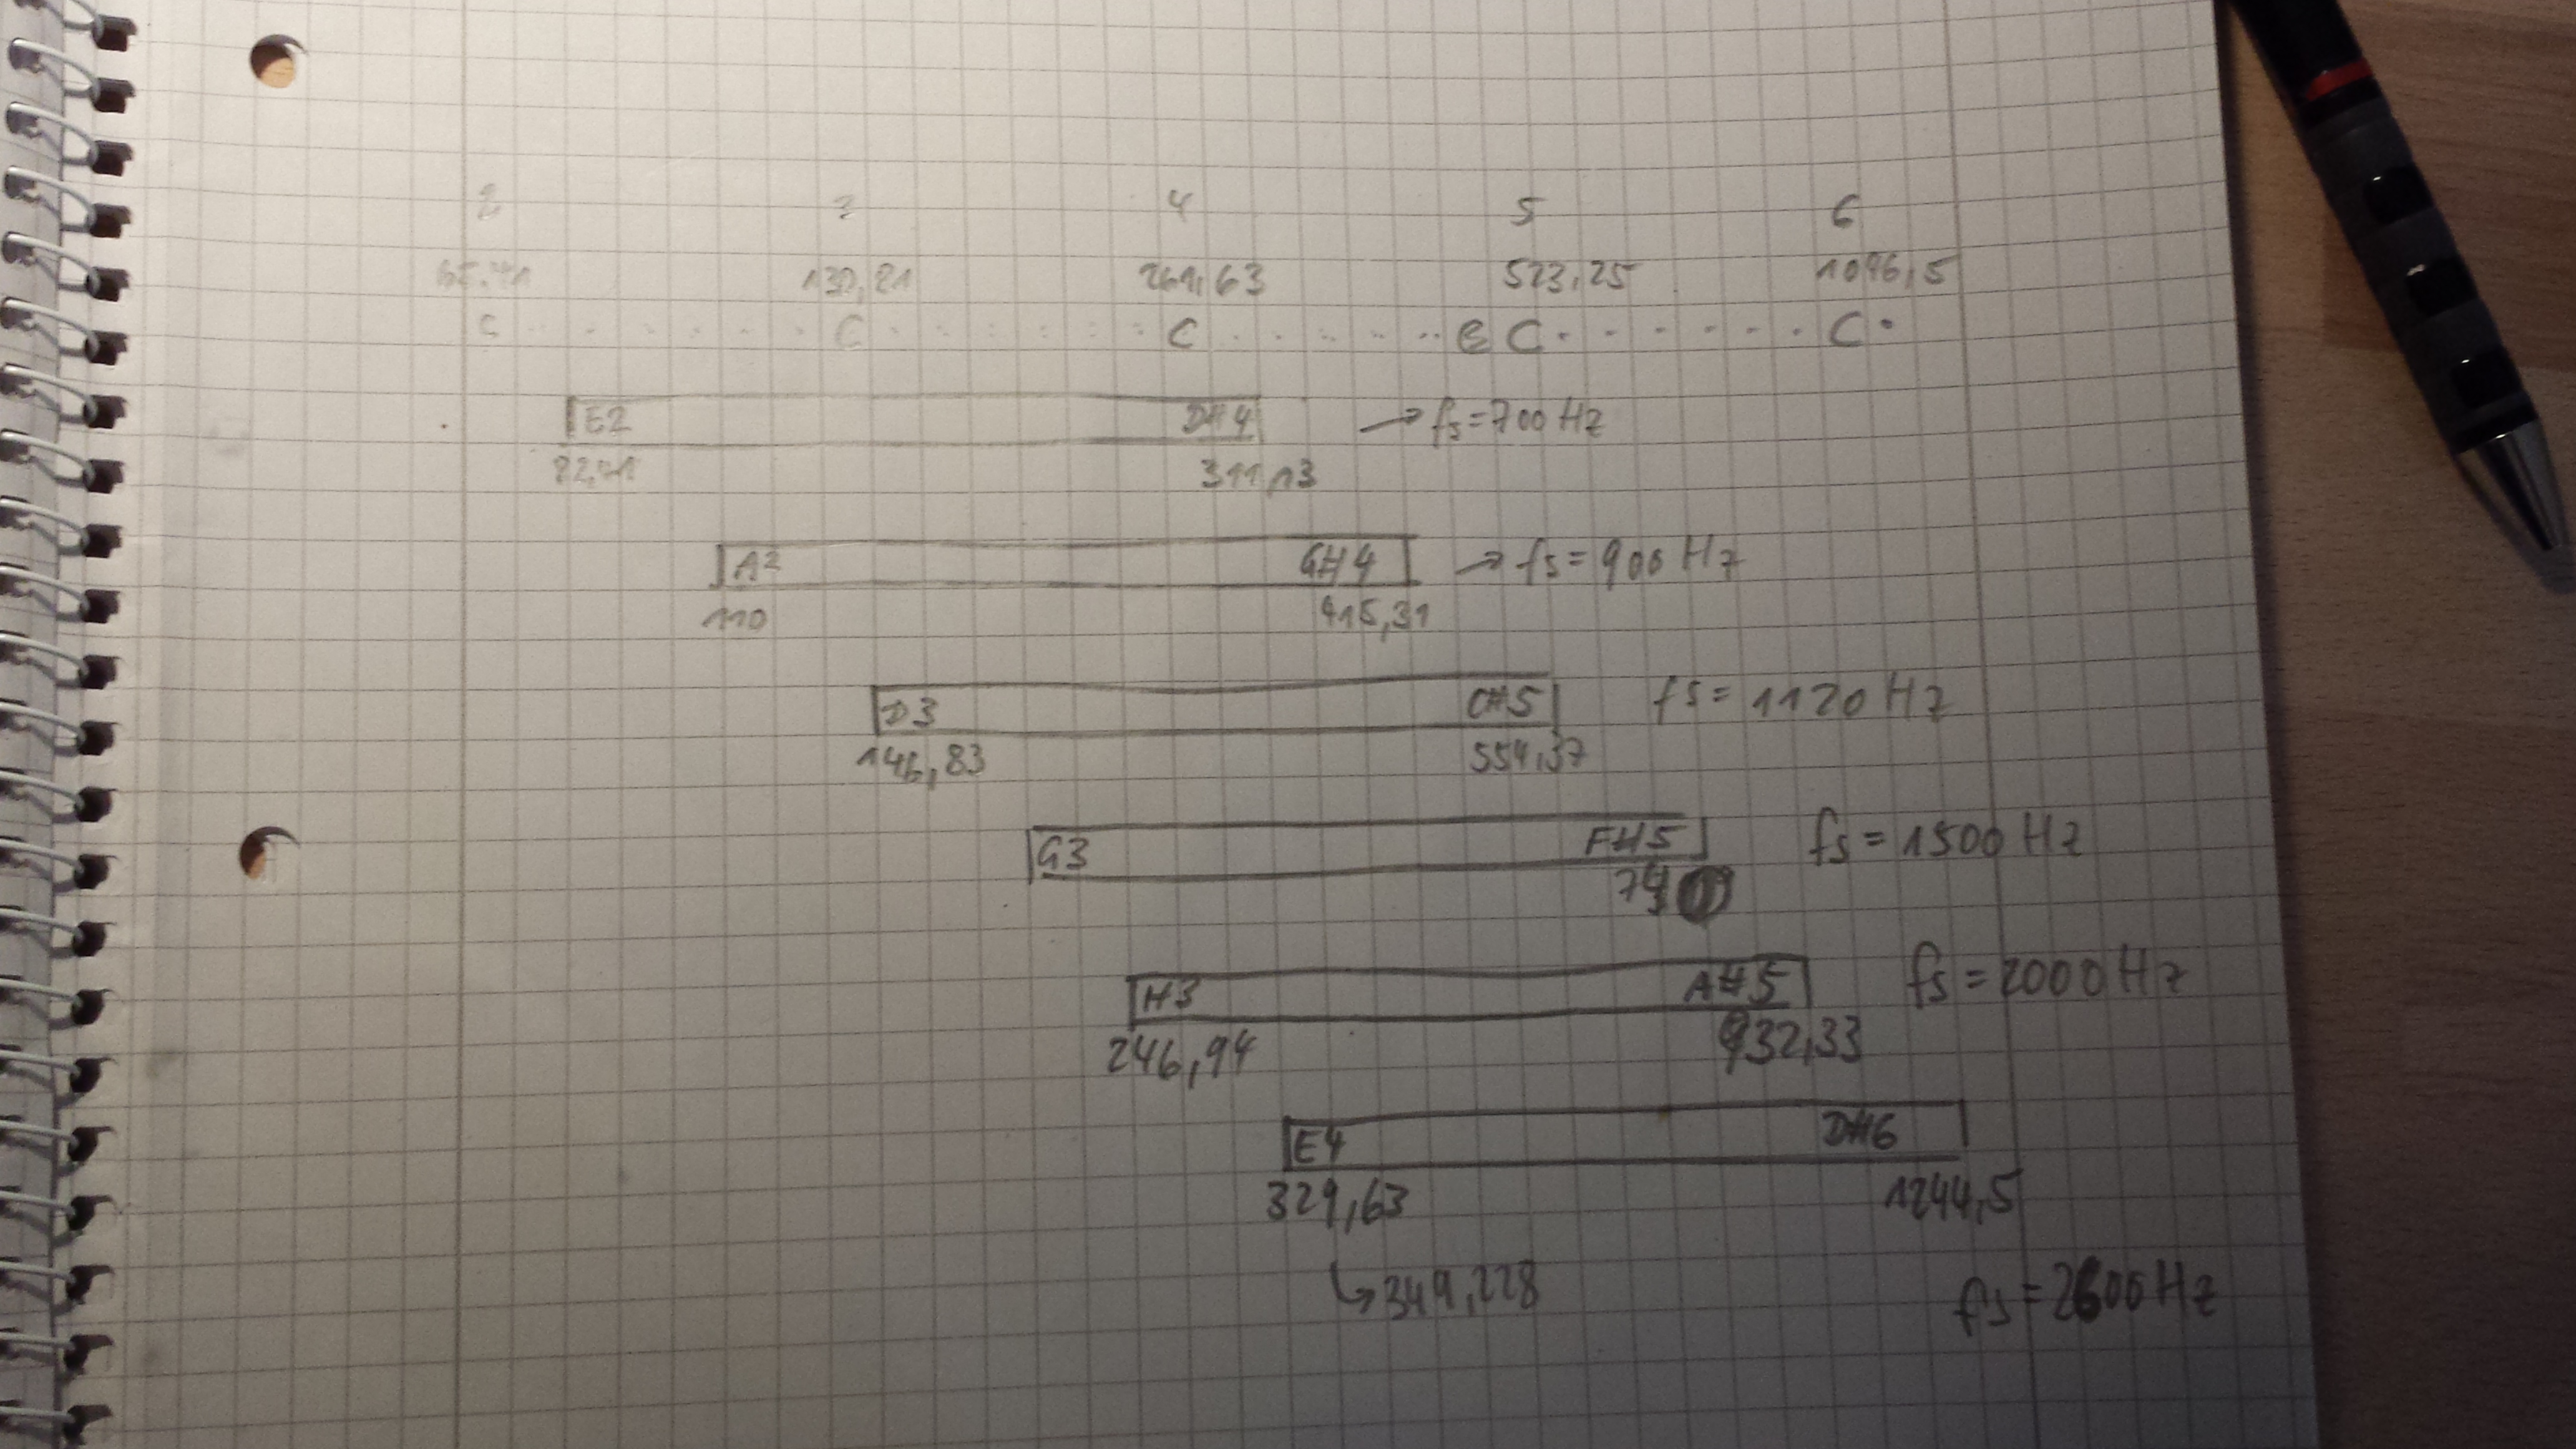 2 3 4 5 6
65,41 130,81 261,63 523,25 1046,5
C C C C C
E2 D#4 → fs=700 Hz
82,41 311,13
A2 G#4 → fs=900 Hz
110 415,31
D3 C#5 fs=1120 Hz
146,83 554,37
G3 F#5 fs=1500 Hz
H3 A#5 fs=2000 Hz
246,94 932,33
E4 D#6
329,63 1244,5
↳ 349,228 fs=2600 Hz